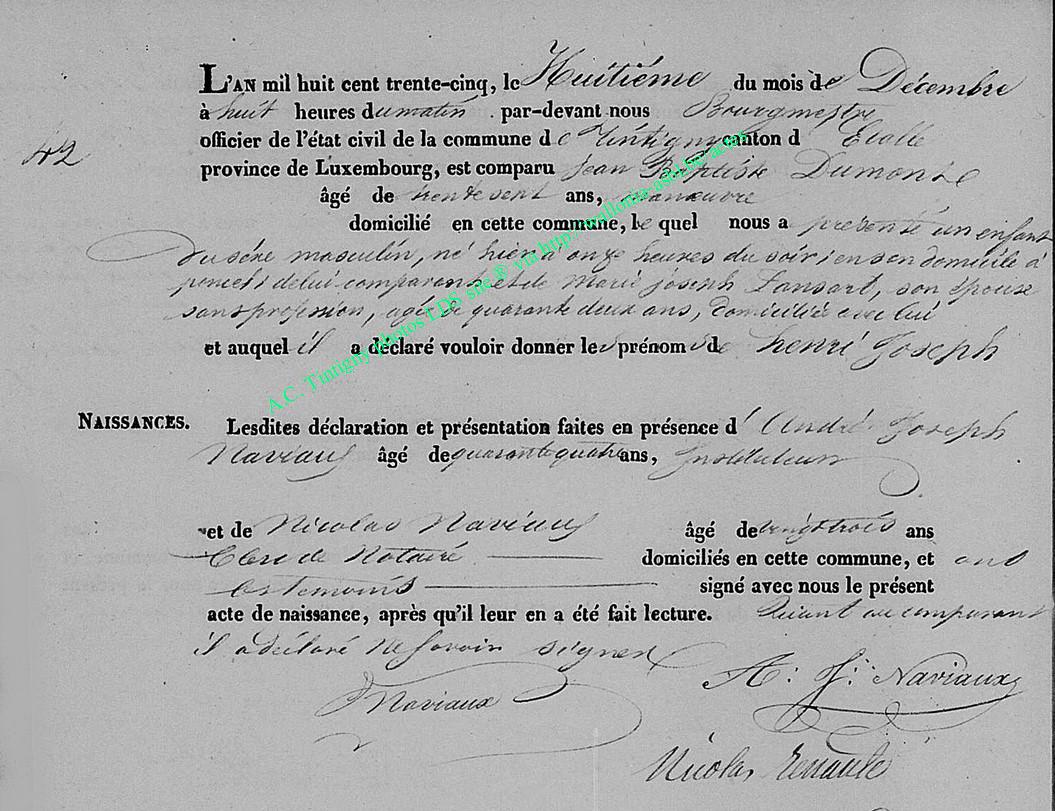 L'AN mil huit cent trente-cinq, le Huitiéme du mois de Décembre
à huit heures du matin par-devant nous Bourgmestre
officier de l'état civil de la commune de Tintigny canton d' Etalle
42
province de Luxembourg, est comparu Jean Baptiste Dumont
âgé de trente sept ans, manœuvre
domicilié en cette commune, le quel nous a présenté un enfant
du séxe masculin, né hier à onze heures du soir, en son domicile à
de lui comparant et de Marie joseph Lansart, son épouse
sans profession, agée de quarante deux ans, domiciliée avec lui
et auquel il a déclaré vouloir donner les prénoms de henri Joseph
NAISSANCES. Lesdites déclaration et présentation faites en présence d' André Joseph
Naviaux âgé de quarante quatre ans, Instituteur
et de Nicolas âgé de vingt trois ans
Clerc de Notaire domiciliés en cette commune, et ont
les temoins signé avec nous le présent
acte de naissance, après qu'il leur en a été fait lecture. Quant au comparant
il a déclaré ne savoir signer
A: J: Naviaux
Naviaux
Nicolas
A.C. Tintigny photos LDS site ® via http://wallonia-asbl.be/actes